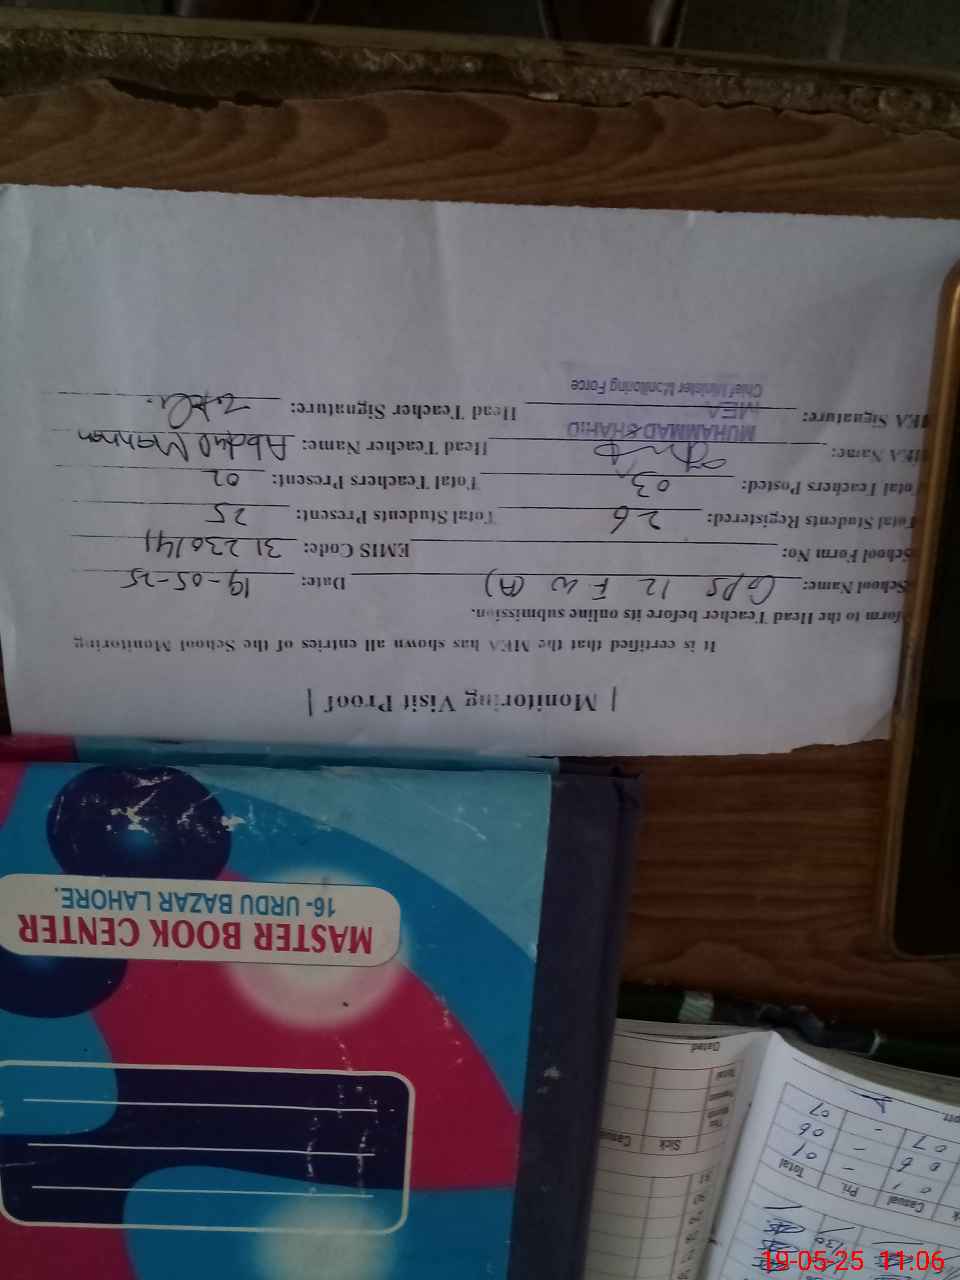 Monitoring Visit Proof
It is certified that the MEA has shown all entries of the School Monitoring
form to the Head Teacher before its online submission.
School Name: GPS 12 F W (A) Date: 19-05-25
School Form No: EMIS Code: 31230141
Total Students Registered: 26 Total Students Present: 25
Total Teachers Posted: 03 Total Teachers Present: 02
MEA Name: Head Teacher Name: Abdul Mannan
MUHAMMAD SHAHID
MEA Signature: Head Teacher Signature:
MEA
Chief Minister Monitoring Force
MASTER BOOK CENTER
16- URDU BAZAR LAHORE.
Total
Dated
Sick Casual
Casual Pri. Total
01 - 01
06 - 06
07 - 07
19-05-25 11:06